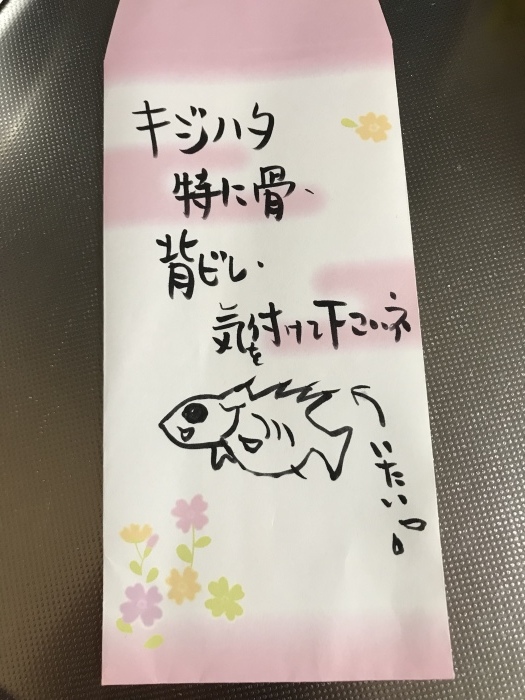 キジハタ
特に骨、
背ビレ、
気を付けて下さいネ
いたい